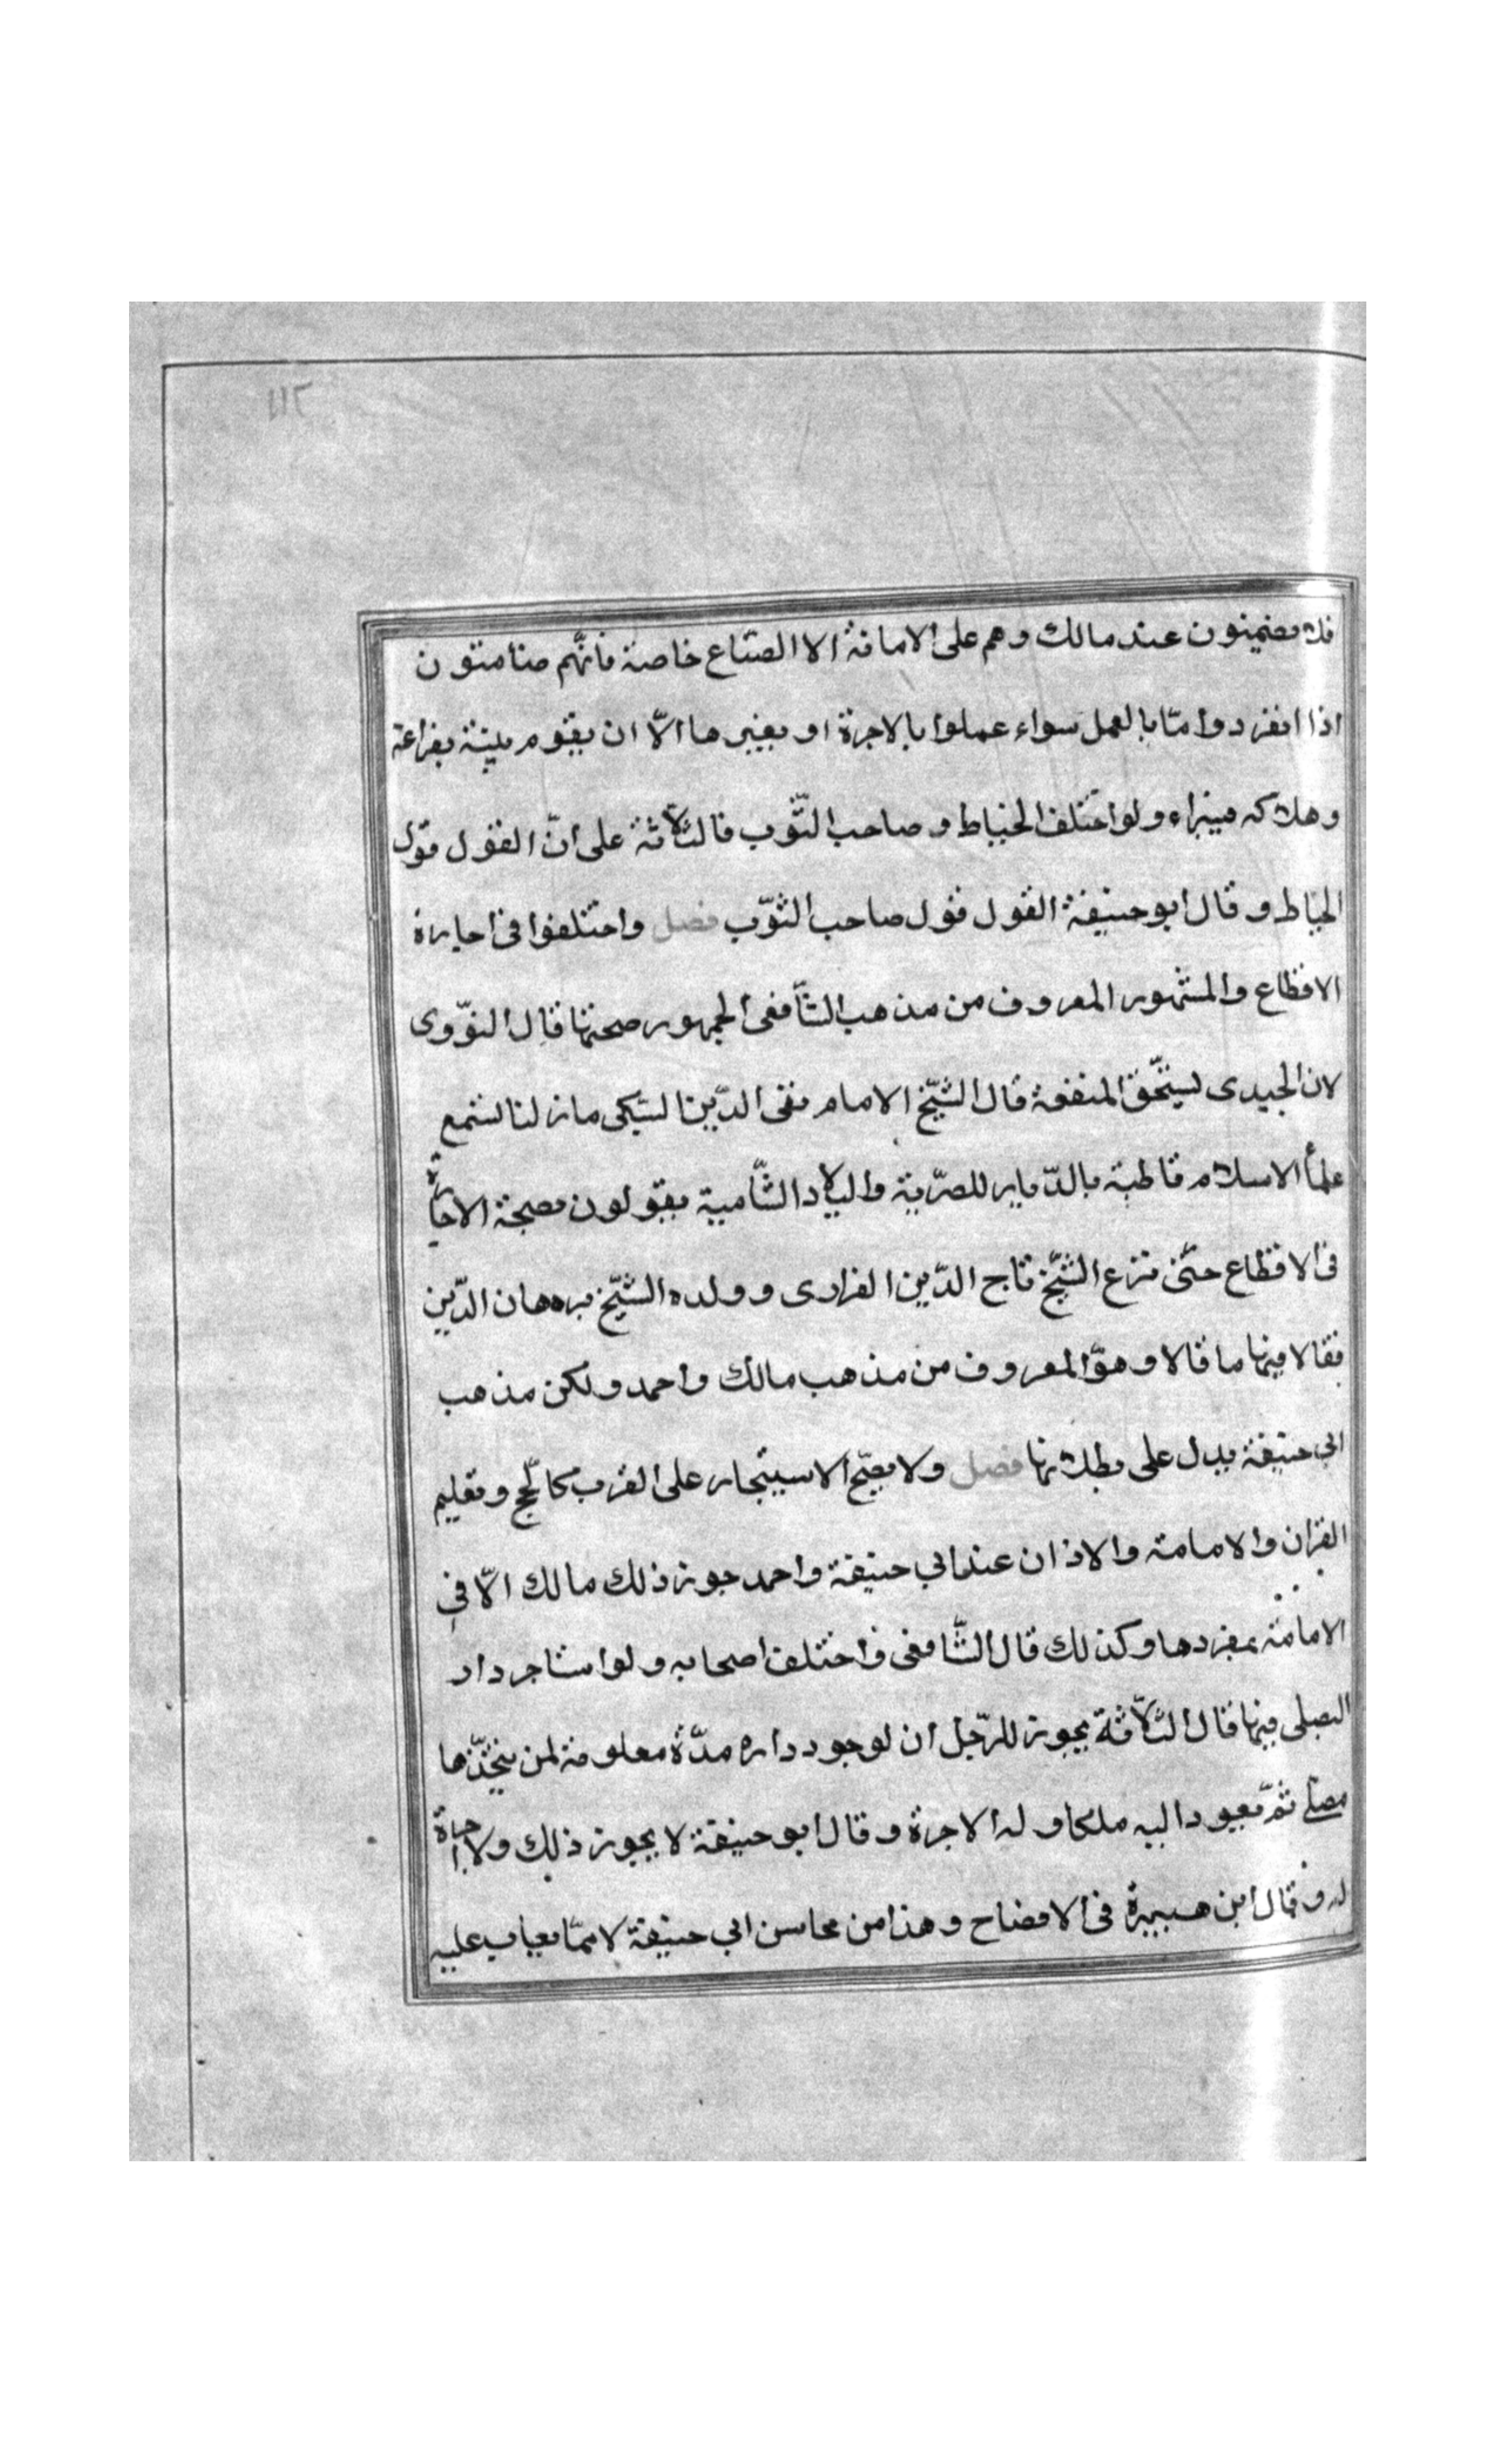 ١١٢
فلا يضمنون عند مالك وهم على الامانة الا الصنّاع خاصة فانّهم ضامنون
اذا انفردوا امّا بالعمل سواء عملوا بالاجرة او بغيرها الّا ان يقوم بينة بفراغه
وهلاكه فيبراء ولو اختلف الخياط وصاحب الثّوب فالثلاثة على انّ القول قول
الخيّاط وقال ابو حنيفة القول قول صاحب الثوّب فصل واختلفوا فى اجارة
الاقطاع والمشهور المعروف من مذهب الشّافعى الجمهور صحتها قال النوّوى
لان الجيدى يستحّق المنفعة قال الشّيخ الامام تقى الدّين السّبكى مازلنا نسمع
علمأ الاسلام قاطبة بالدّيار المصرّية والبلاد الشّامية يقولون بصحة الاجارة
فى الاقطاع حتّى نزع الشّيخ تاج الدّين الفزارى وولده الشّيخ برهان الدّين
فقالا فيها ما قالا وهوّ المعروف من مذهب مالك واحمد ولكن مذهب
ابي حنيفة يدل على بطلانها فصل ولا يصّح الاستيجار على القرب كالحّج وتعليم
القران والامامة والاذان عند ابي حنيفة واحمد جوز ذلك مالك الّا فى
الامامة بمفردها وكذلك قال الشّافعى واختلف اصحابه ولو استاجر دار
ليصلى فيها قال الثلاّثة يجوز للرّجل ان لوجود داره مدّة معلومة لمن يتخّذها
مصلى ثمّ يعود اليه ملكا وله الاجرة وقال ابو حنيفة لا يجوز ذلك ولا اجرة
له وقال ابن هبيرة فى الافصاح وهذا من محاسن ابي حنيفة لا ممّا يعاب عليه